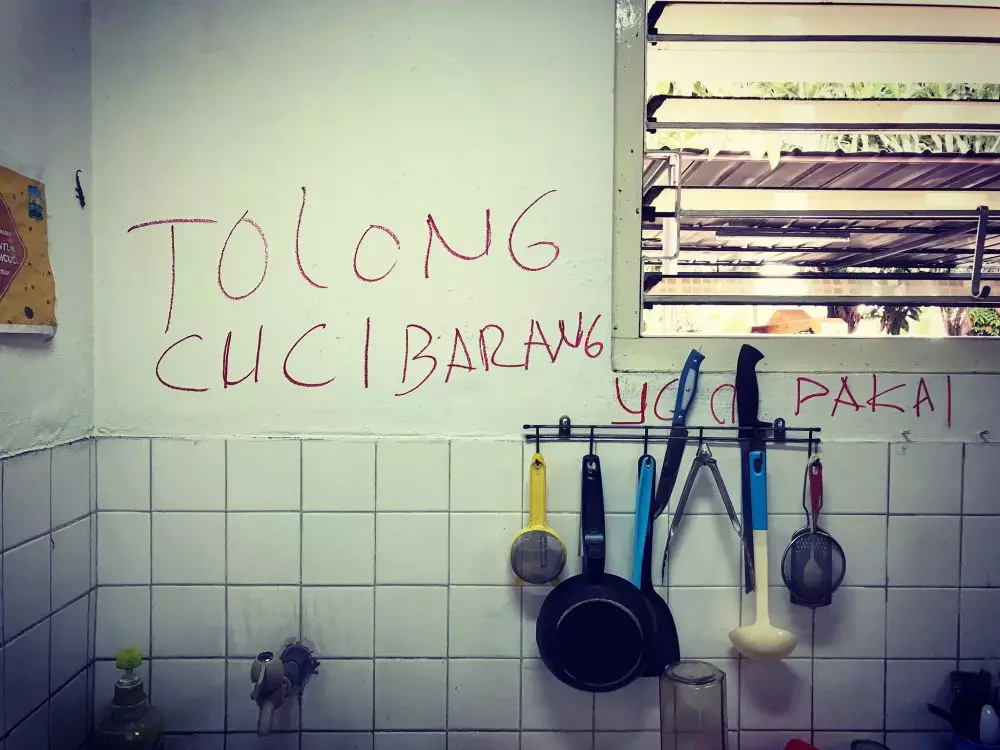 TOLONG
CUCI BARANG
YG PAKAI